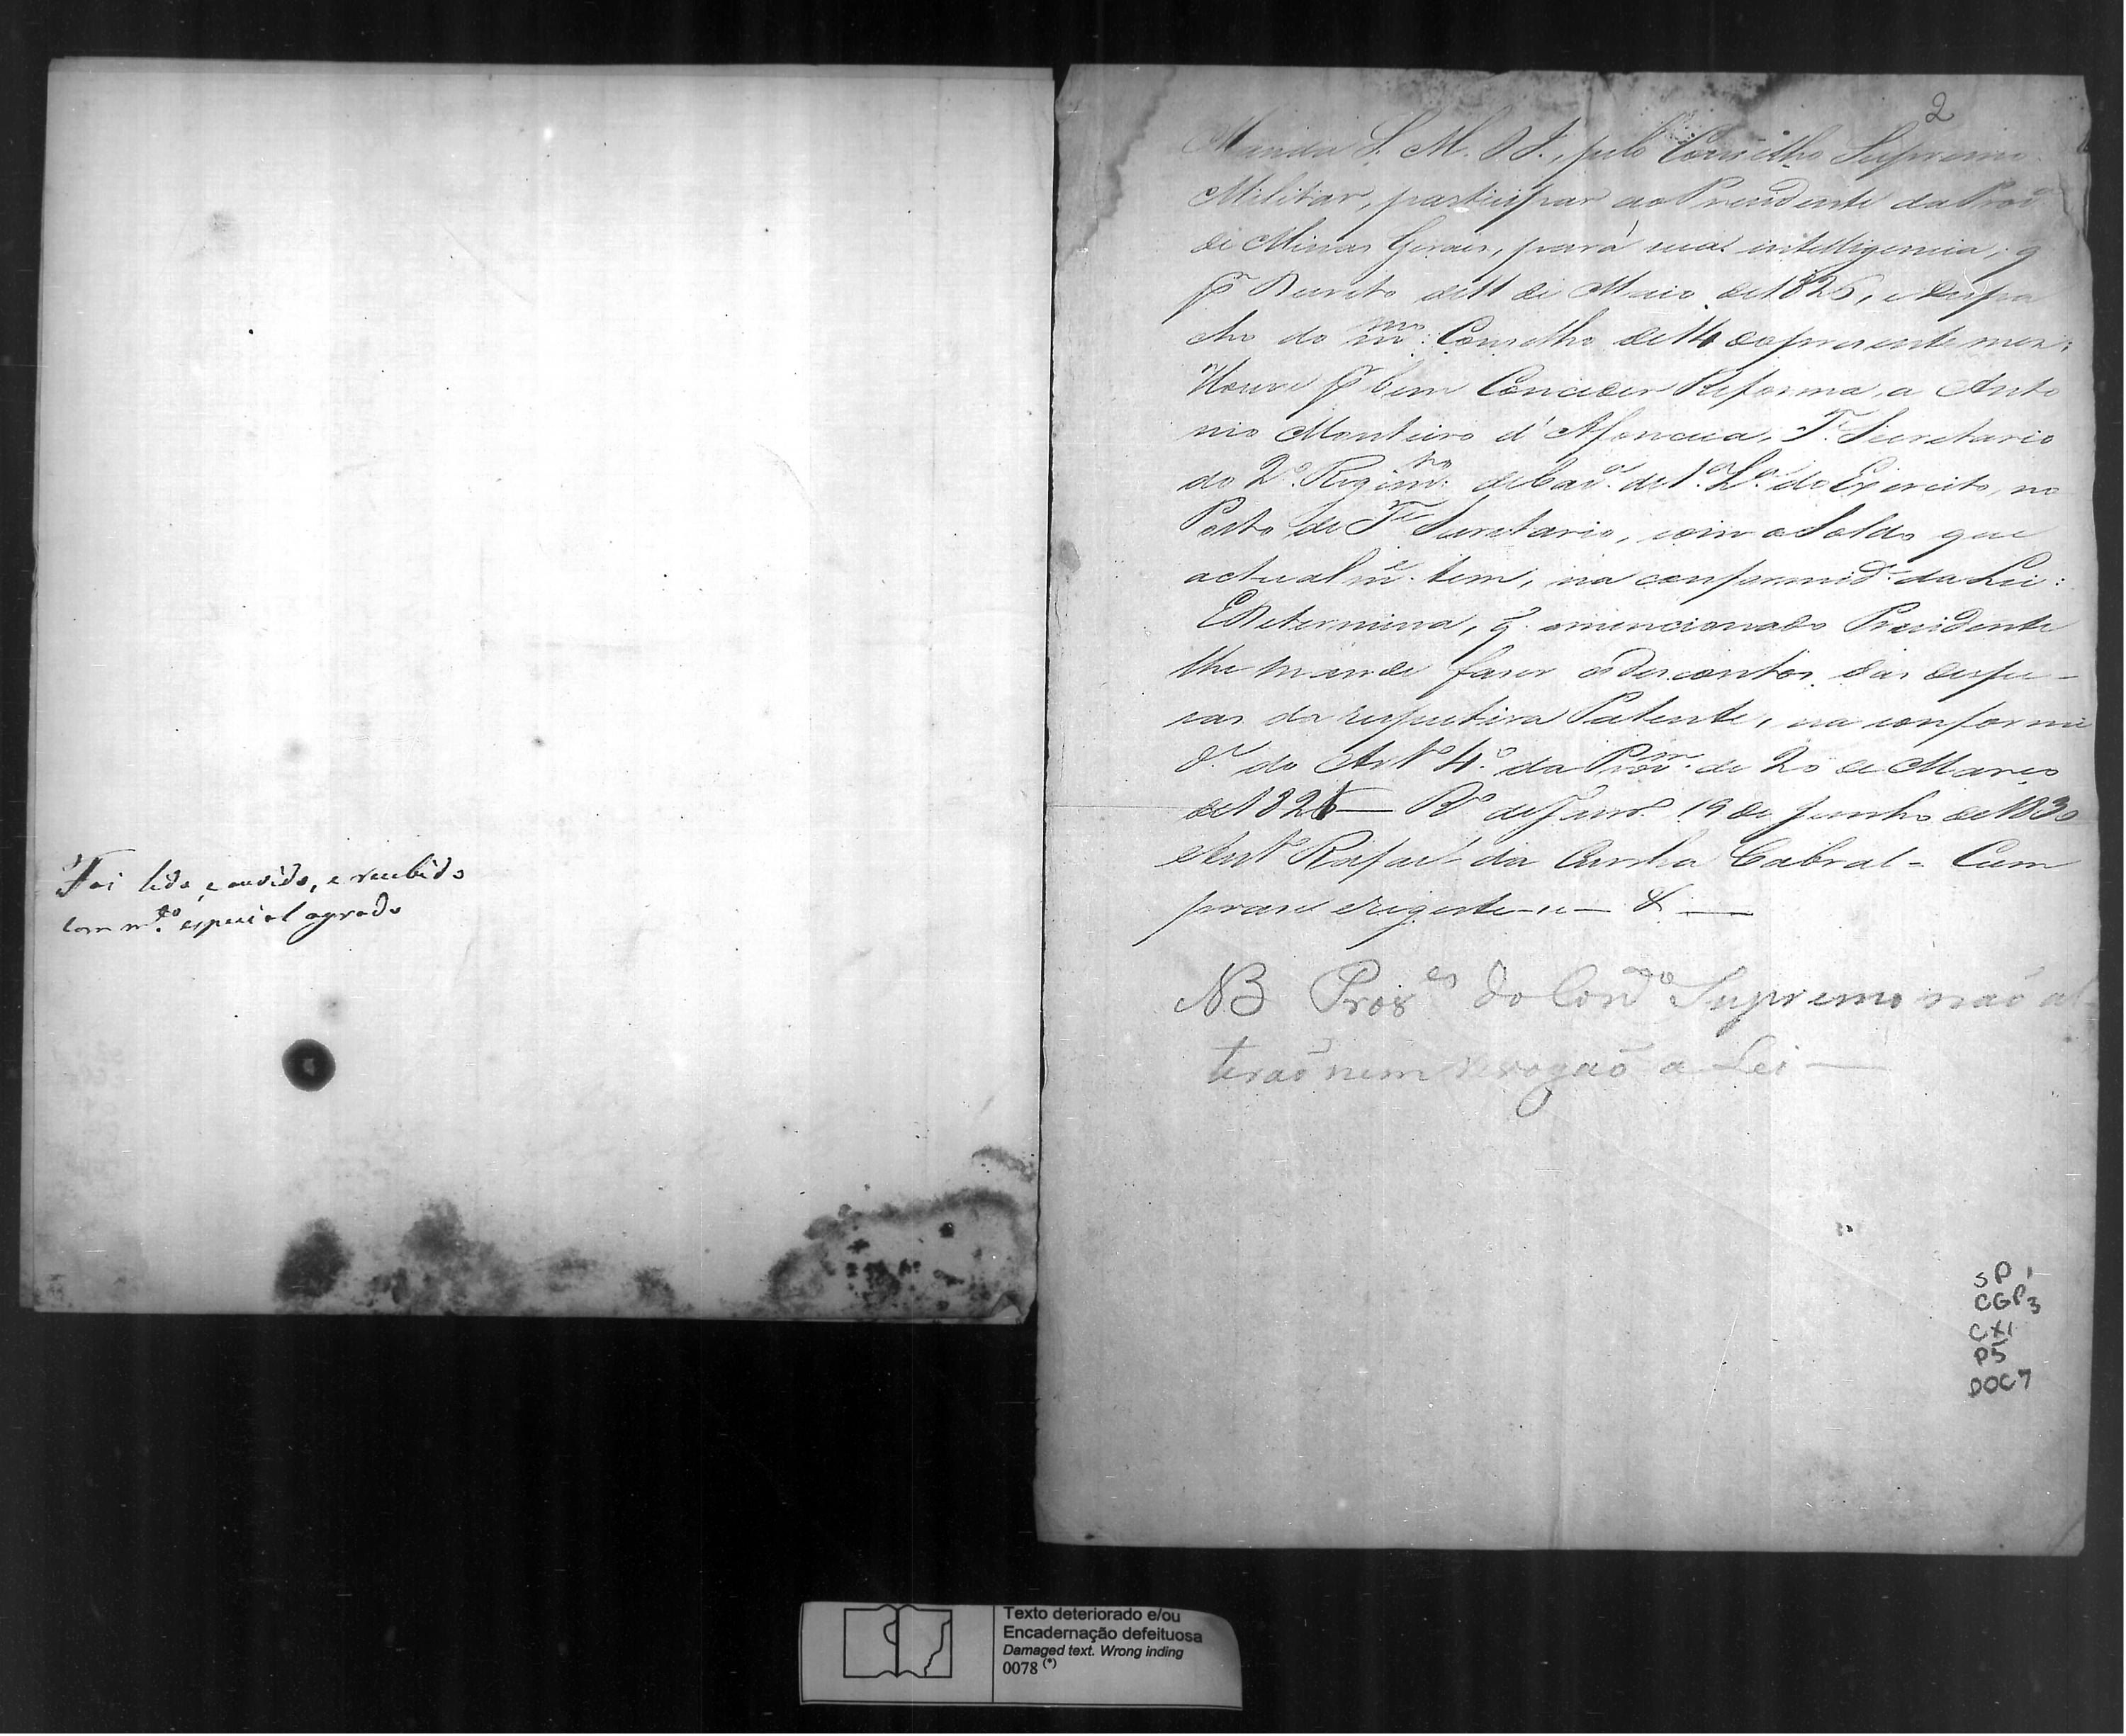 Foi lido, e ouvido, e recebido
com m.to especial agrado
2
Manda S. M. O I., pelo Conselho Supremo
Militar, participar ao Presidente da Prov.a
de Minas Geraes, para sua intelligencia, q
p.r Decreto de 11 de Maio de 1826, e Despa
cho do m.mo Conselho de 14 do presente mez;
Houve p.r bem Conceder Reforma, a Anto
nio Monteiro d'Afonceca, T.e Secretario
do 2.o Regim.to de Cav.a de 1.a L.a do Exercito, no
Posto de T.e Secretario, com o Soldo que
actualm.e tem, na conformid.e da Lei:
E Determina, q. o mencionado Presidente
lhe mande faser os descontos das despe-
zas da respectiva Patente, na conformi
d.e do Art.o 4.o da Prov.m de 20 de Março
de 1825 — R.o de Janr.o 19 de Junho de 1830
Rafael da Cunha Cabral - Cum
prase e registe-se — & —
NB Prov.es do Con.o Supremo naõ al-
teraõ nem revogaõ a Lei —
SP 1
CGP3
CX1
P5
DOC7
Texto deteriorado e/ou
Encadernação defeituosa
Damaged text. Wrong inding
0078 (*)